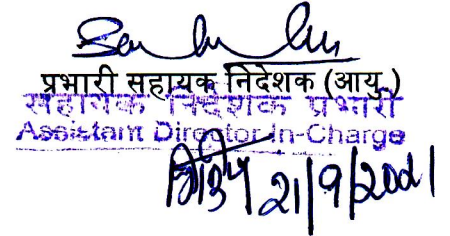 प्रभारी सहायक निदेशक (आयु.)
सहायक निदेशक प्रभारी
Assistant Director In-Charge
21/9/2021